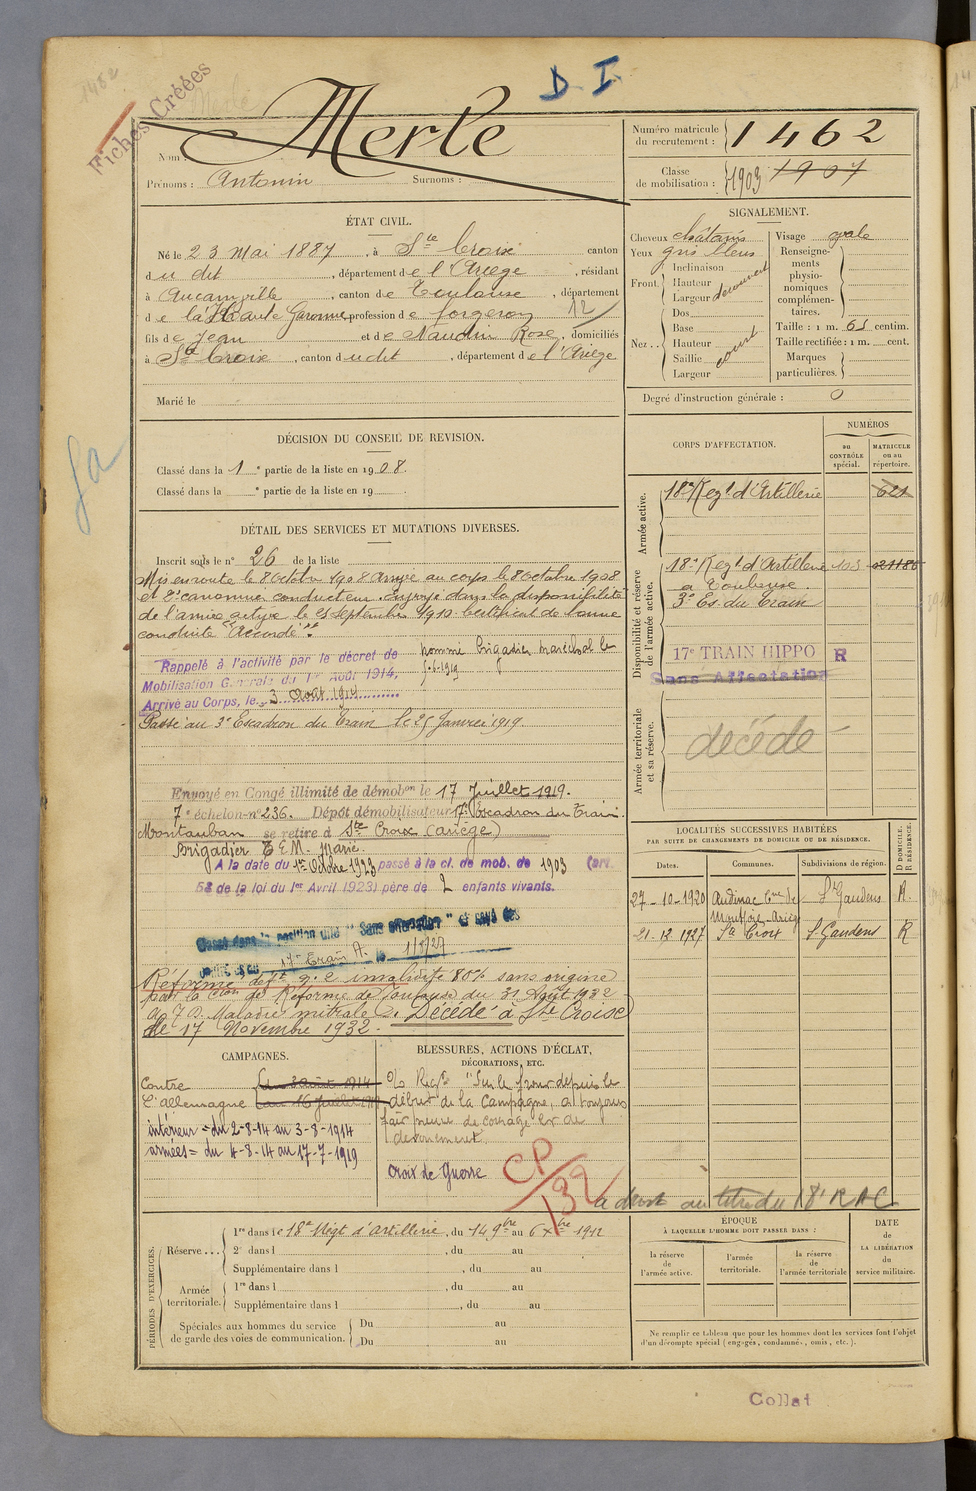 D. I.
Fiches Créées
Nom : Merle
Prénoms : Antonin Surnoms :
Numéro matricule du recrutement : 1462
Classe de mobilisation : 1903 1907
ÉTAT CIVIL.
Né le 23 Mai 1887, à Ste Croix canton
du dit, département de l'Ariège, résidant
à Aucamville, canton de Toulouse, département
de la Haute Garonne, profession de forgeron 12/
fils de Jean et de Naudin Rose, domiciliés
à Ste Croix, canton du dit, département de l'Ariège
Marié le
SIGNALEMENT.
Cheveux châtains
Yeux gris bleus
Front. Inclinaison
Hauteur
Largeur découvert
Nez... Dos
Base
Hauteur
Saillie
Largeur court
Visage ovale
Renseignements physionomiques complémentaires.
Taille : 1 m. 65 centim.
Taille rectifiée : 1 m. cent.
Marques particulières.
Degré d'instruction générale : 0
DÉCISION DU CONSEIL DE REVISION.
Classé dans la 1e partie de la liste en 1908.
Classé dans la e partie de la liste en 19
CORPS D'AFFECTATION.
NUMÉROS
au CONTRÔLE spécial.
MATRICULE ou au répertoire.
Armée active.
18e Regt d'Artillerie 621
Disponibilité et réserve de l'armée active.
18e Regt d'Artillerie 103
a Toulouse
3e Es. du Train
17e TRAIN HIPPO R
Sans Affectation
Armée territoriale et sa réserve.
décédé
DÉTAIL DES SERVICES ET MUTATIONS DIVERSES.
Inscrit sous le n° 26 de la liste
Mis en route le 8 octobre 1908 Arrivé au corps le 8 octobre 1908
et 2e canonnier conducteur. Envoyé dans la disponibilité
de l'armée active le 25 septembre 1910. Certificat de bonne
conduite "Accordé".
Rappelé à l'activité par le décret de
Mobilisation Générale du 1er Août 1914,
Arrivé au Corps, le 3 Août 1914
nommé brigadier maréchal le
5-6-1919
Passé au 3e Escadron du Train le 25 Janvier 1919
Envoyé en Congé illimité de démobon le 17 Juillet 1919.
7e échelon n° 236. Dépôt démobilisateur 17e Escadron du Train
Montauban se retire à Ste Croix (Ariège)
A la date du 1er Octobre 1923 passé à la cl. de mob. de 1903 (art.
58 de la loi du 1er Avril 1923) père de 2 enfants vivants.
Classé dans la position dite "Sans affectation" et rayé des
17e Train A. le 1/1/27
Réformé déft n° 2 invalidité 80% sans origine
par la Cion de Réforme de Toulouse du 31 Août 1932
Maladie mitrale. Décédé à Ste Croix
le 17 Novembre 1932.
LOCALITÉS SUCCESSIVES HABITÉES
PAR SUITE DE CHANGEMENTS DE DOMICILE OU DE RÉSIDENCE.
Dates. Communes. Subdivisions de région. D DOMICILE. R RÉSIDENCE.
27-10-1920 Audinac Cne de Montjoie-Ariège St Gaudens R.
21-12 1927 Ste Croix St Gaudens R
CAMPAGNES.
Contre l'allemagne
du 3 août 1914
au 16 juillet 1919
intérieur = du 2-8-14 au 3-8-1914
armées = du 4-8-14 au 17-7-1919
BLESSURES, ACTIONS D'ÉCLAT,
DÉCORATIONS, ETC.
O/ Regt "Sur le front depuis le
début de la Campagne, a toujours
fait preuve de courage et de
dévouement.
Croix de Guerre
CP/132
a droit au titre du 18e RAC
PÉRIODES D'EXERCICES.
Réserve... 1re dans le 18e Régt d'Artillerie, du 14 9bre au 6 Xbre 1912
2e dans l , du au
Supplémentaire dans l , du au
Armée territoriale. 1re dans l , du au
Supplémentaire dans l , du au
Spéciales aux hommes du service de garde des voies de communication. Du au
Du au
ÉPOQUE
À LAQUELLE L'HOMME DOIT PASSER DANS :
la réserve de l'armée active.
l'armée territoriale.
la réserve de l'armée territoriale
DATE de LA LIBÉRATION du service militaire.
Ne remplir ce tableau que pour les hommes dont les services font l'objet
d'un décompte spécial (engagés, condamnés, omis, etc.).
Collat